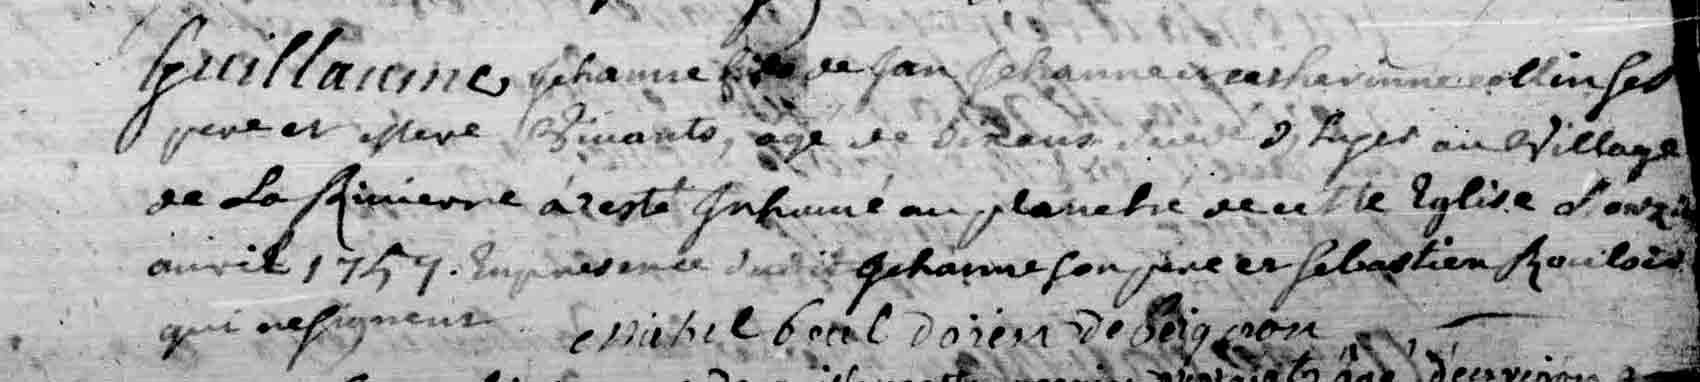 Guillaume Jehanne fils de Jan Jehanne et catherinne collin ses
pere et mere Vivants, agé de dix ans decedé d'hyer au Village
de La Rivierre á esté Inhumé au planché de cette Eglise L'onze
avril 1757. En presence dudit Jehanne son pere et Sebastien Roulois
qui ne signent
Michel doien de beignon